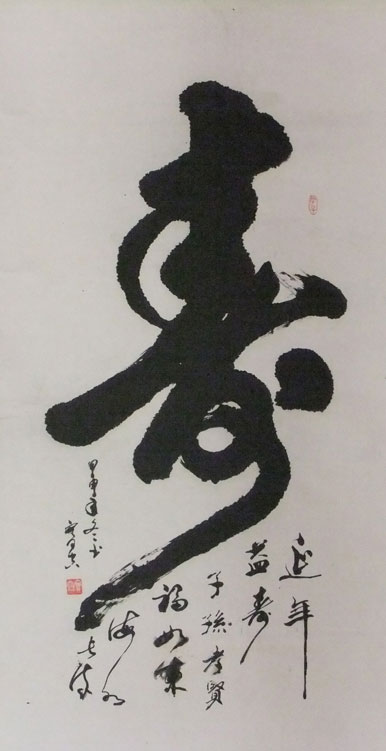 寿
延年
益寿
子孫孝賢
福如東
海水
長流
甲申年冬书